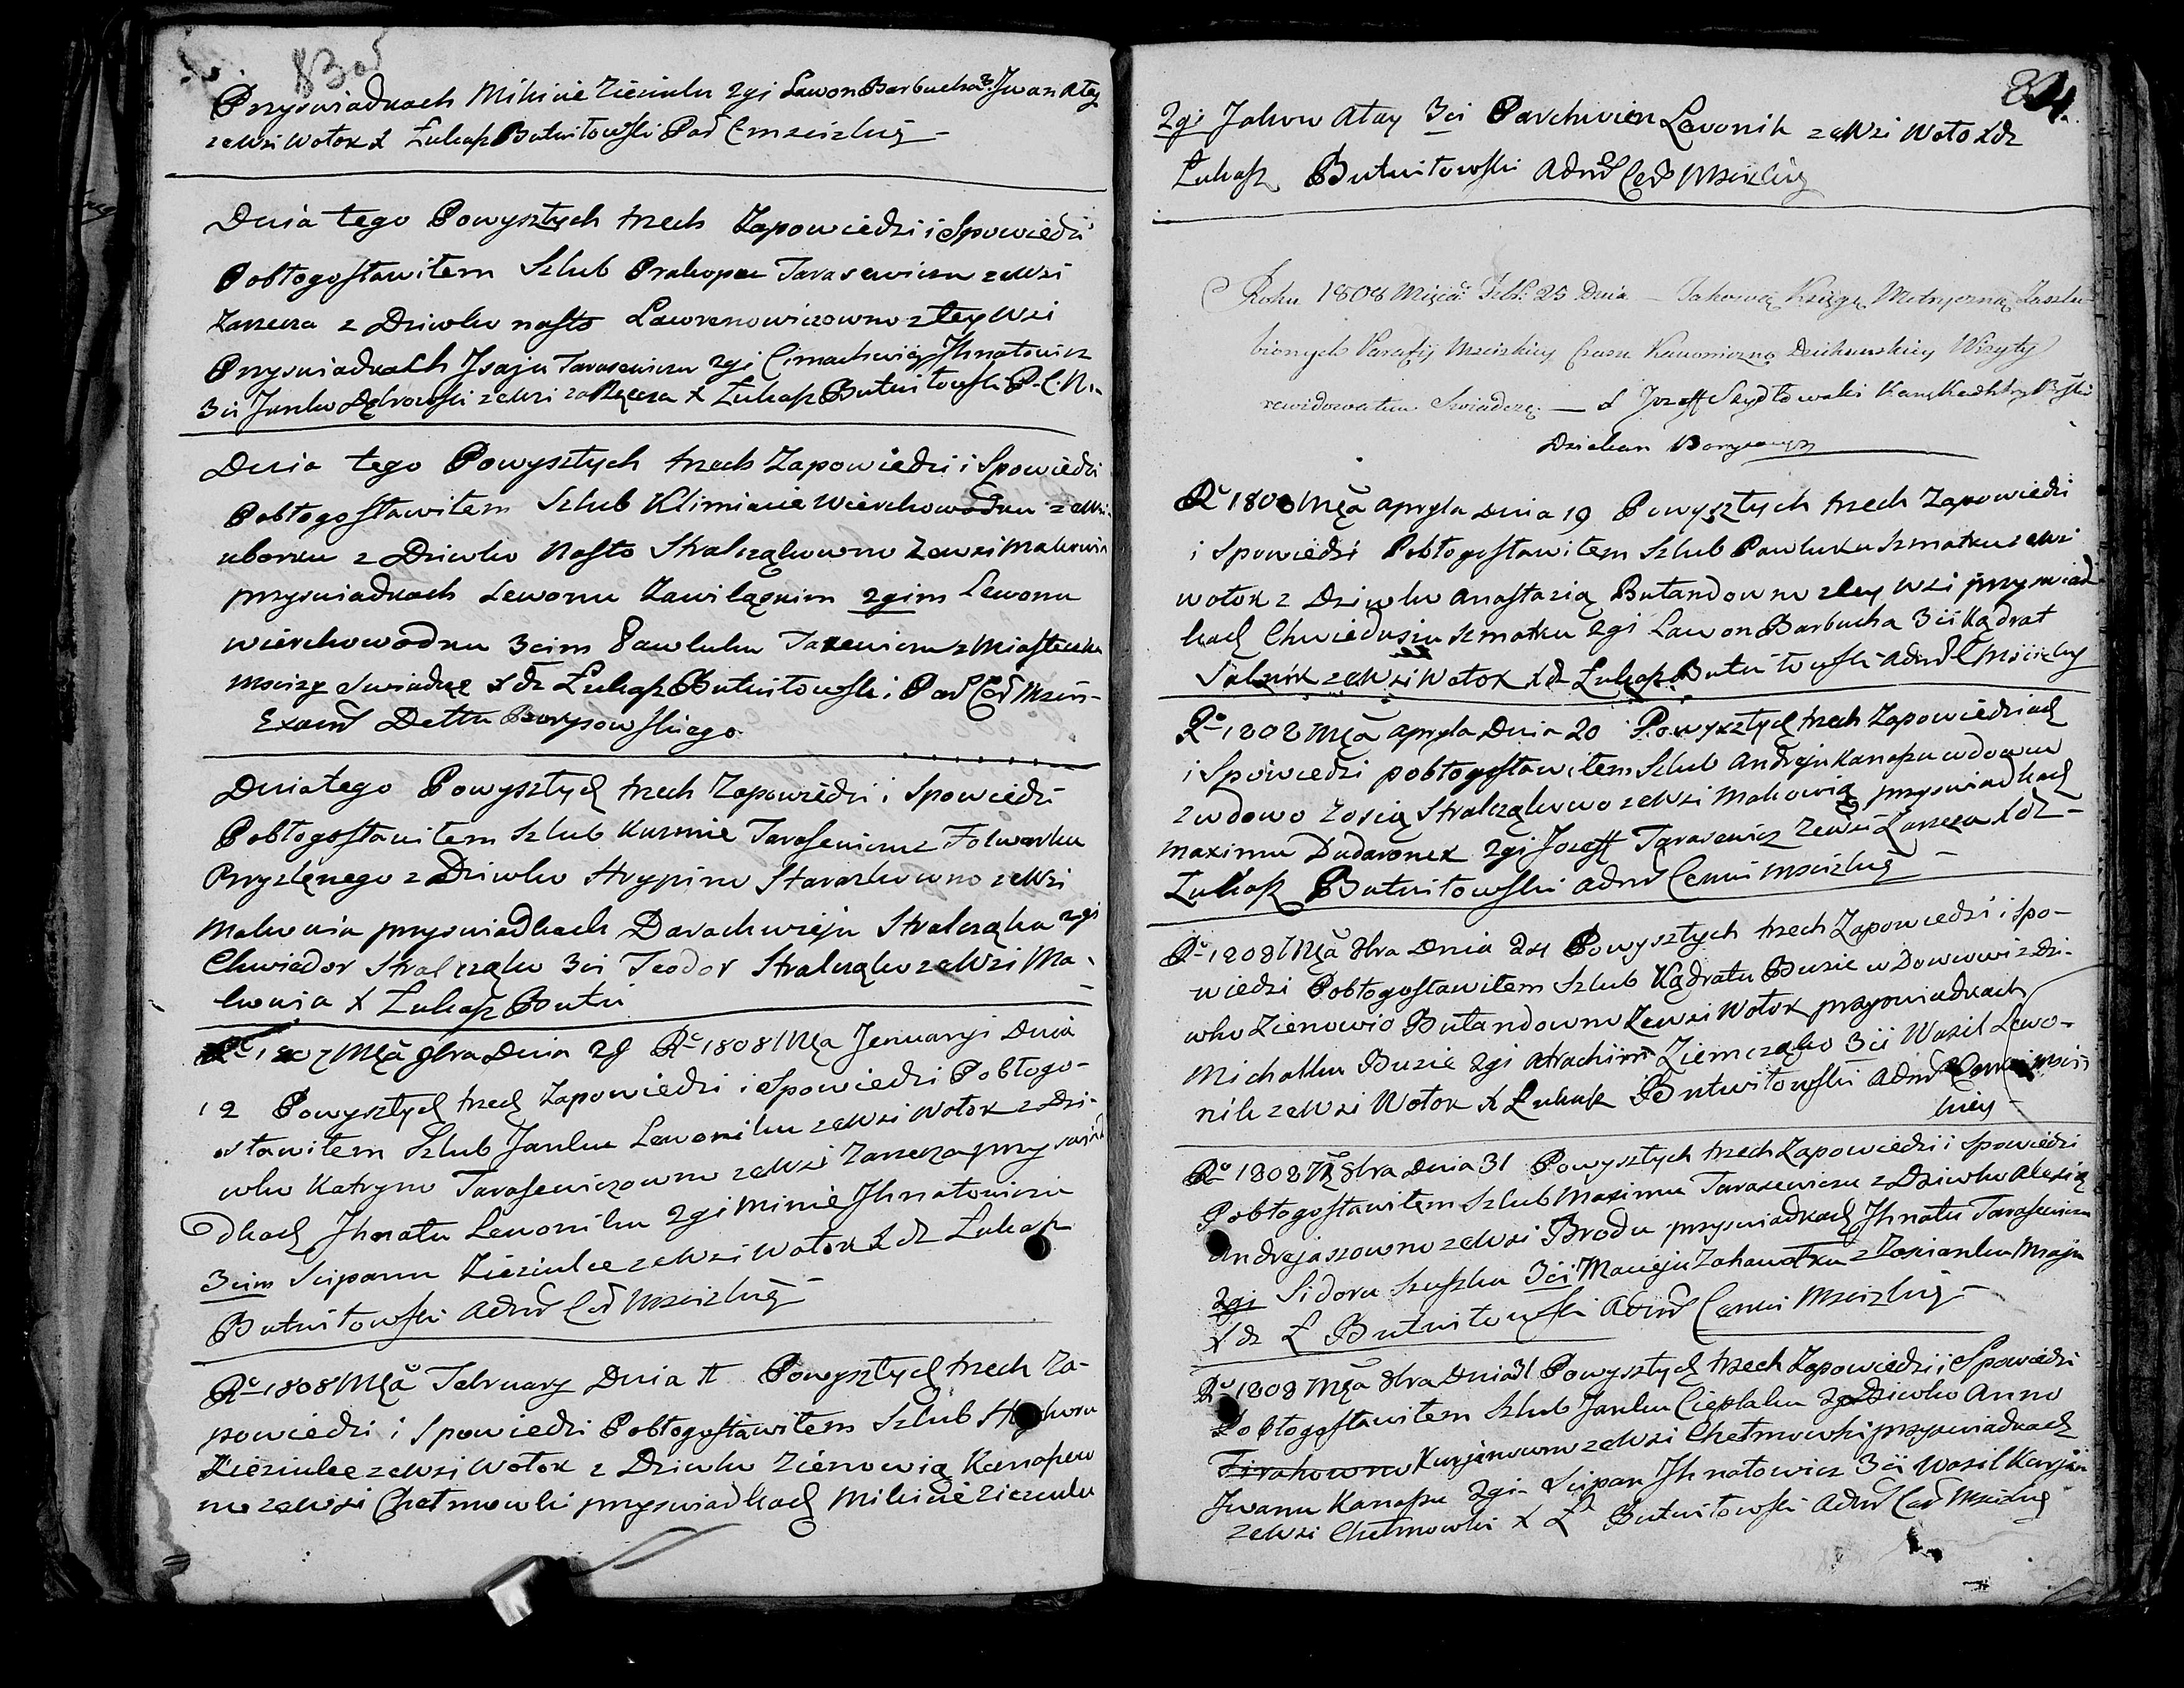 83 os
Przyswiadkach Mikicie Zieziulu 2gi Lawon Barbucha 3 Jwan Atay
ze Wsi Wołok X Łukasz Butwiłowski Pad C mscizkiÿ
Dnia tego Powyszłych trzech Zapowiedzi i Spowiedzi
Pobłogosławiłem Szlub Prakopu Tarasewiczu ze Wsi
Zarzecza z Dziwko nasto Lawrenowiczowno z tey Wsi
Przyswiadkach Jsaju Tarasewiczu 2gi Jhnatowicz
3ci Janko Dąbrowski ze Wsi zarzecza X Łukasz Butwiłowski P. C. M.
Dnia tego Powyszłych trzech Zapowiedzi i Spowiedzi
Pobłogosławiłem Szlub Klimiacie Wierchowodku ze Wsi
uborku z Dziwko Nasto Stralczątkowno ze wsi makowia
przyswiadkach Lewonu 2gim Lewonu
wierchowodku 3cim Pawluku z Miasteczka
mscizy swiadczę Xdz Łukasz Butwiłowski Pad Cer Mscis-
Exam Dettu Borysowskiego
Dnia tego Powyszłych trzech Zapowiedzi i Spowiedzi
Pobłogosławiłem Szlub Kuzmie Tarasewiczu z Folwarku
z Dziwko Hrypino Starazkowno ze Wsi
Makowia przyswiadkach Darachwieju Stralczątku 2gi
Chwiedor Stralczątko 3ci Teodor Stralczątko ze Wsi Ma-
kowia X Łukasz Butwi
Rº 1807 Mca 9bra Dnia 29 Rº 1808 Mca Jenuaryi Dnia
12 Powyszłych trzech Zapowiedzi i Spowiedzi Pobłogo-
sławiłem Szlub Janku Lewoniku ze Wsi Wołok z Dzi-
wko Katryno Tarasewiczowno ze Wsi Zarzecza przyswia
dkach Jhnatu Lewoniku 2gi Minie Jhnatowiczu
3cim Scipanu Zieziulce ze Wsi Wołok X dz Łukasz
Butwiłowski Adm Cer Mscizkiÿ
Rº 1808 Mca February Dnia Powyszłych trzech Za-
powiedzi i Spowiedzi Pobłogosławiłem Szlub
Zieziulce ze Wsi Wołok z Dziwko Zienowią Kanaszew
no ze Wsi Chełmowki przyswiadkach Mikicie Zieziulu
84
2gi Jakow Atay 3ci Parchwien Lewonik ze Wsi Wołok Xdz
Łukasz Butwiłowski Adm Cer Mscizkiÿ
Roku 1808 Miesca Febr: 25 Dnia – Takową Księgę Metryczną Zaszlu
bionych Parafij Mscizkiey Czasu Kanoniczno Dziekanskiey Wizyty
rewidowałem Swiadczę. — X Jozeff Szydłowski
Dziekan
Rº 1808 Mca Apryla Dnia 19 Powyszłych trzech Zapowiedzi
i Spowiedzi Pobłogosławiłem Szlub Pawluku Szmatku ze Wsi
wołok z Dziwko Anastazią Butandowno z tey Wsi przyswiad
kach Chwiedusiu szmatku 2gi Lawon Barbucha 3ci Kądrat
ze Wsi Wołok Xdz Łukasz Butwiłowski Adm C Mscizkiy
Rº 1808 Mca Apryla Dnia 20 Powyszłych trzech Zapowiedziach
i Spowiedzi pobłogosławiłem Szlub Andreju Kanaszu wdowcu
z wdowo Zosią Stralczątkowo ze Wsi Makowia przyswiadkach
Maximu Dudaronek 2gi Jozeff Tarasewicz ze Wsi Zarzecza Xdz
Łukasz Butwiłowski Adm Cerkwi Mscizkiÿ
Rº 1808 Mca 8bra Dnia 24 Powyszłych trzech Zapowiedzi i Spo-
wiedzi Pobłogosławiłem Szlub Kądratu Buzie wdowcowi z Dzi-
wko Zienowio Butandowno ze wsi Wołok przyswiadkach
Michałku Buzie 2gi Atrachim Ziemczątko 3ci Wasil Lewo-
nik ze Wsi Wołok X Łukasz Butwiłowski Adm Mscis
kiey
Rº 1808 8bra Dnia 31 Powyszłych trzech Zapowiedzi i Spowiedzi
Pobłogosławiłem Szlub Maximu Tarasewiczu z Dziwko Alesią
Andrejaszowno ze Wsi Brodu przyswiadkach Jhnatu Tarasewiczu
2gi Sidoru Szuszku 3ci Macieju z
Xdz Ł Butwiłowski Adm Cerkwi Mscizkiÿ
Rº 1808 Mca 8bra Dnia 31 Powyszłych trzech Zapowiedzi i Spowiedzi
Pobłogosławiłem Szlub Janku Cieplaku z Dziwko Anno
Kurjanowno ze Wsi Chełmowki przyswiadkach
Jwanu Kanaszu 2gi Scipan Jhnatowicz 3ci Wasil Kurjan
ze Wsi Chełmowki X Ł Butwiłowski Adm Cer Mscizkiÿ